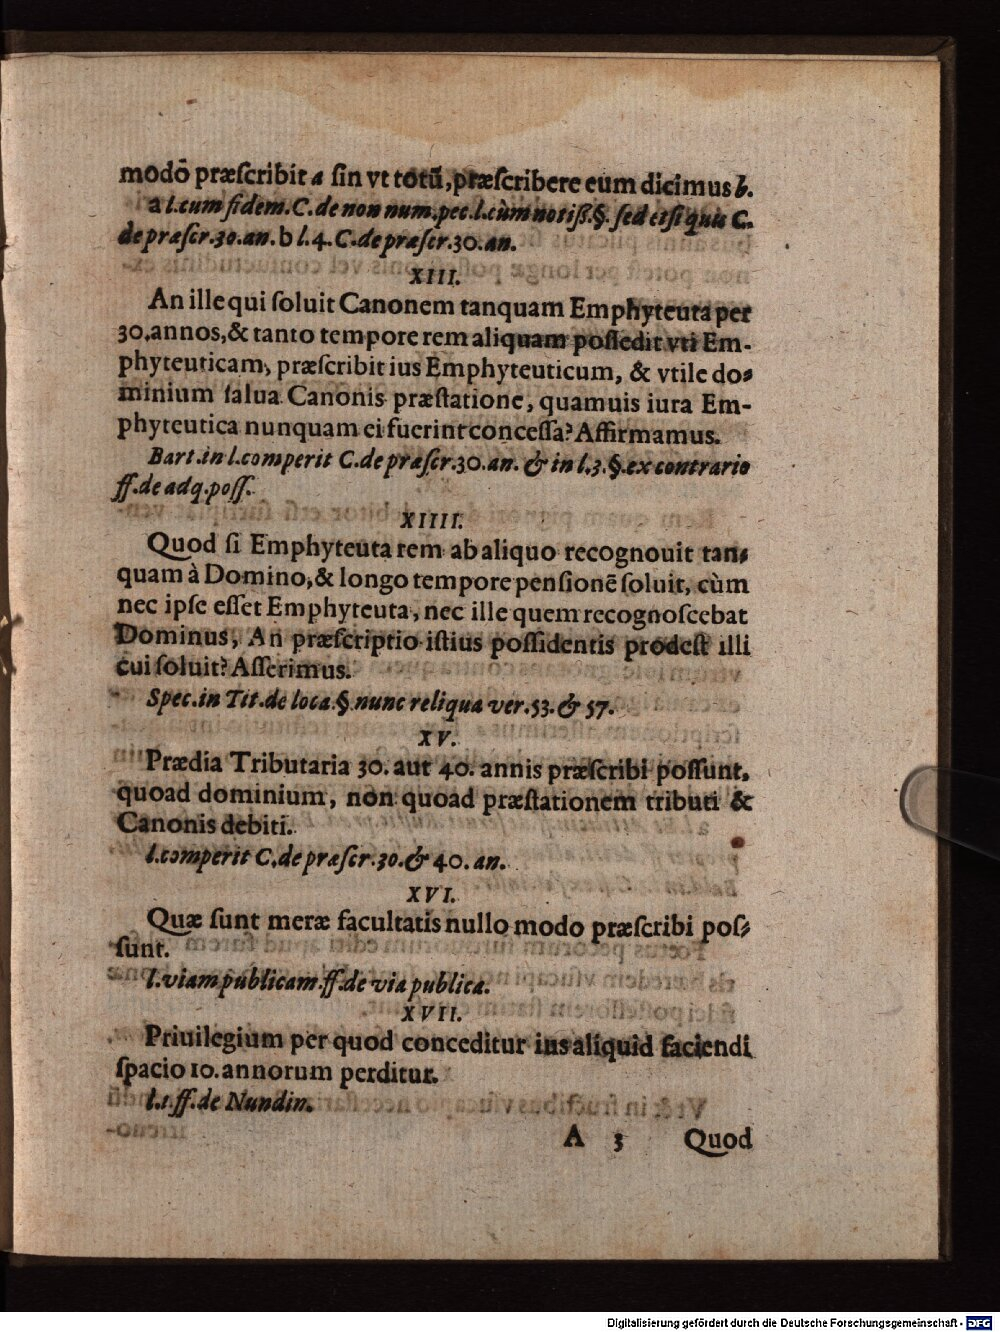 modō præſcribit a ſin vt totū, præſcribere eum dicimus b.
a l.cum fidem. C. de non num. pec. l. cùm notiſſ. §. ſed etſi quis C.
de præſcr. 30. an. b l. 4. C. de præſcr. 30. an.
XIII.
An ille qui ſoluit Canonem tanquam Emphyteuta per
30. annos, & tanto tempore rem aliquam poſſedit vti Em-
phyteuticam, præſcribit ius Emphyteuticum, & vtile do-
minium ſalua Canonis præſtatione, quamuis iura Em-
phyteutica nunquam ei fuerint conceſſa? Affirmamus.
Bart. in l. comperit C. de præſcr. 30. an. & in l. 3. §. ex contrario
ff. de adq. poſſ.
XIIII.
Quod ſi Emphyteuta rem ab aliquo recognouit tan-
quam à Domino, & longo tempore penſionē ſoluit, cùm
nec ipſe eſſet Emphyteuta, nec ille quem recognoſcebat
Dominus, An præſcriptio iſtius poſſidentis prodeſt illi
cui ſoluit? Aſſerimus.
Spec. in Tit. de loca. § nunc reliqua ver. 53. & 57.
XV.
Prædia Tributaria 30. aut 40. annis præſcribi poſſunt,
quoad dominium, non quoad præſtationem tributi &
Canonis debiti.
l. comperit C. de præſcr. 30. & 40. an.
XVI.
Quæ ſunt meræ facultatis nullo modo præſcribi poſ-
ſunt.
l. viam publicam. ff. de via publica.
XVII.
Priuilegium per quod conceditur ius aliquid faciendi
ſpacio 10. annorum perditur.
l. 1. ff. de Nundin.
A 3 Quod
Digitalisierung gefördert durch die Deutsche Forschungsgemeinschaft - DFG